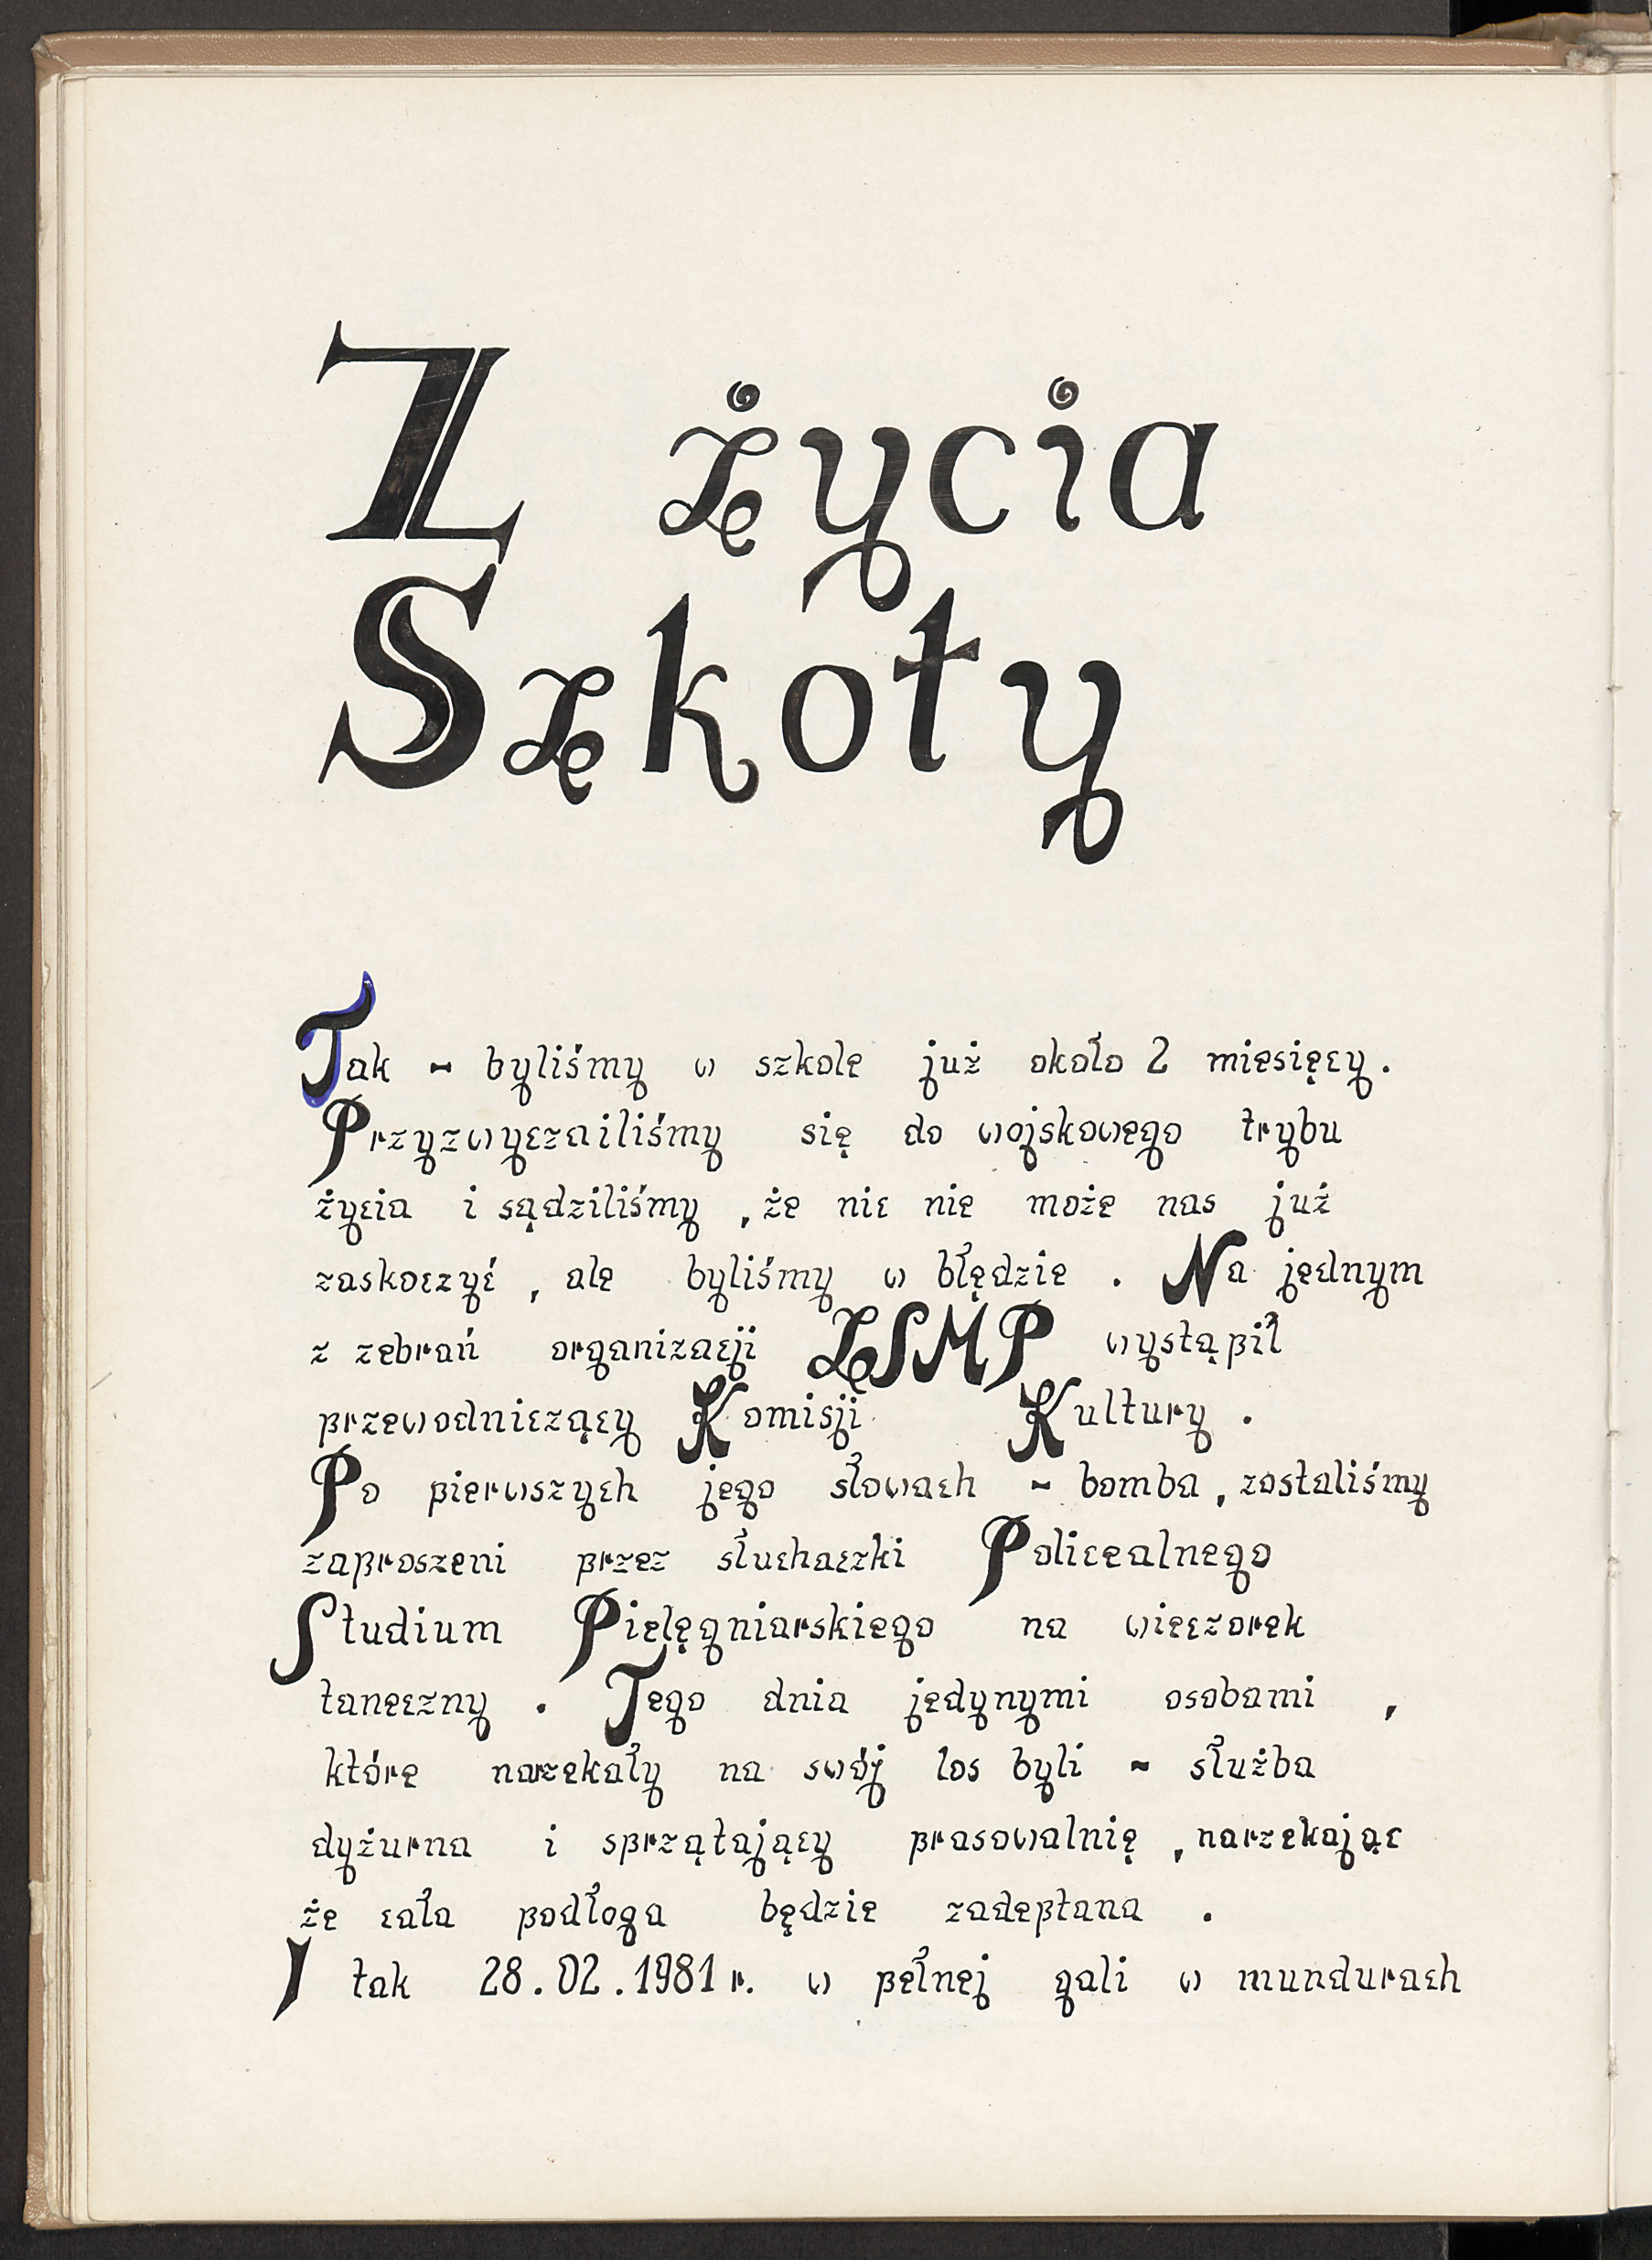 Z życia
Szkoły
Tak - byliśmy w szkole już około 2 miesięcy.
Przyzwyczailiśmy się do wojskowego trybu
życia i sądziliśmy, że nic nie może nas już
zaskoczyć, ale byliśmy w błędzie. Na jednym
z zebrań organizacji ZSMP wystąpił
przewodniczący Komisji Kultury.
Po pierwszych jego słowach - bomba, zostaliśmy
zaproszeni przez słuchaczki Policealnego
Studium Pielęgniarskiego na wieczorek
taneczny. Tego dnia jedynymi osobami,
które narzekały na swój los byli - służba
dyżurna i sprzątający prasowalnię, narzekając
że cała podłoga będzie zadeptana.
I tak 28.02.1981 r. w pełnej gali w mundurach